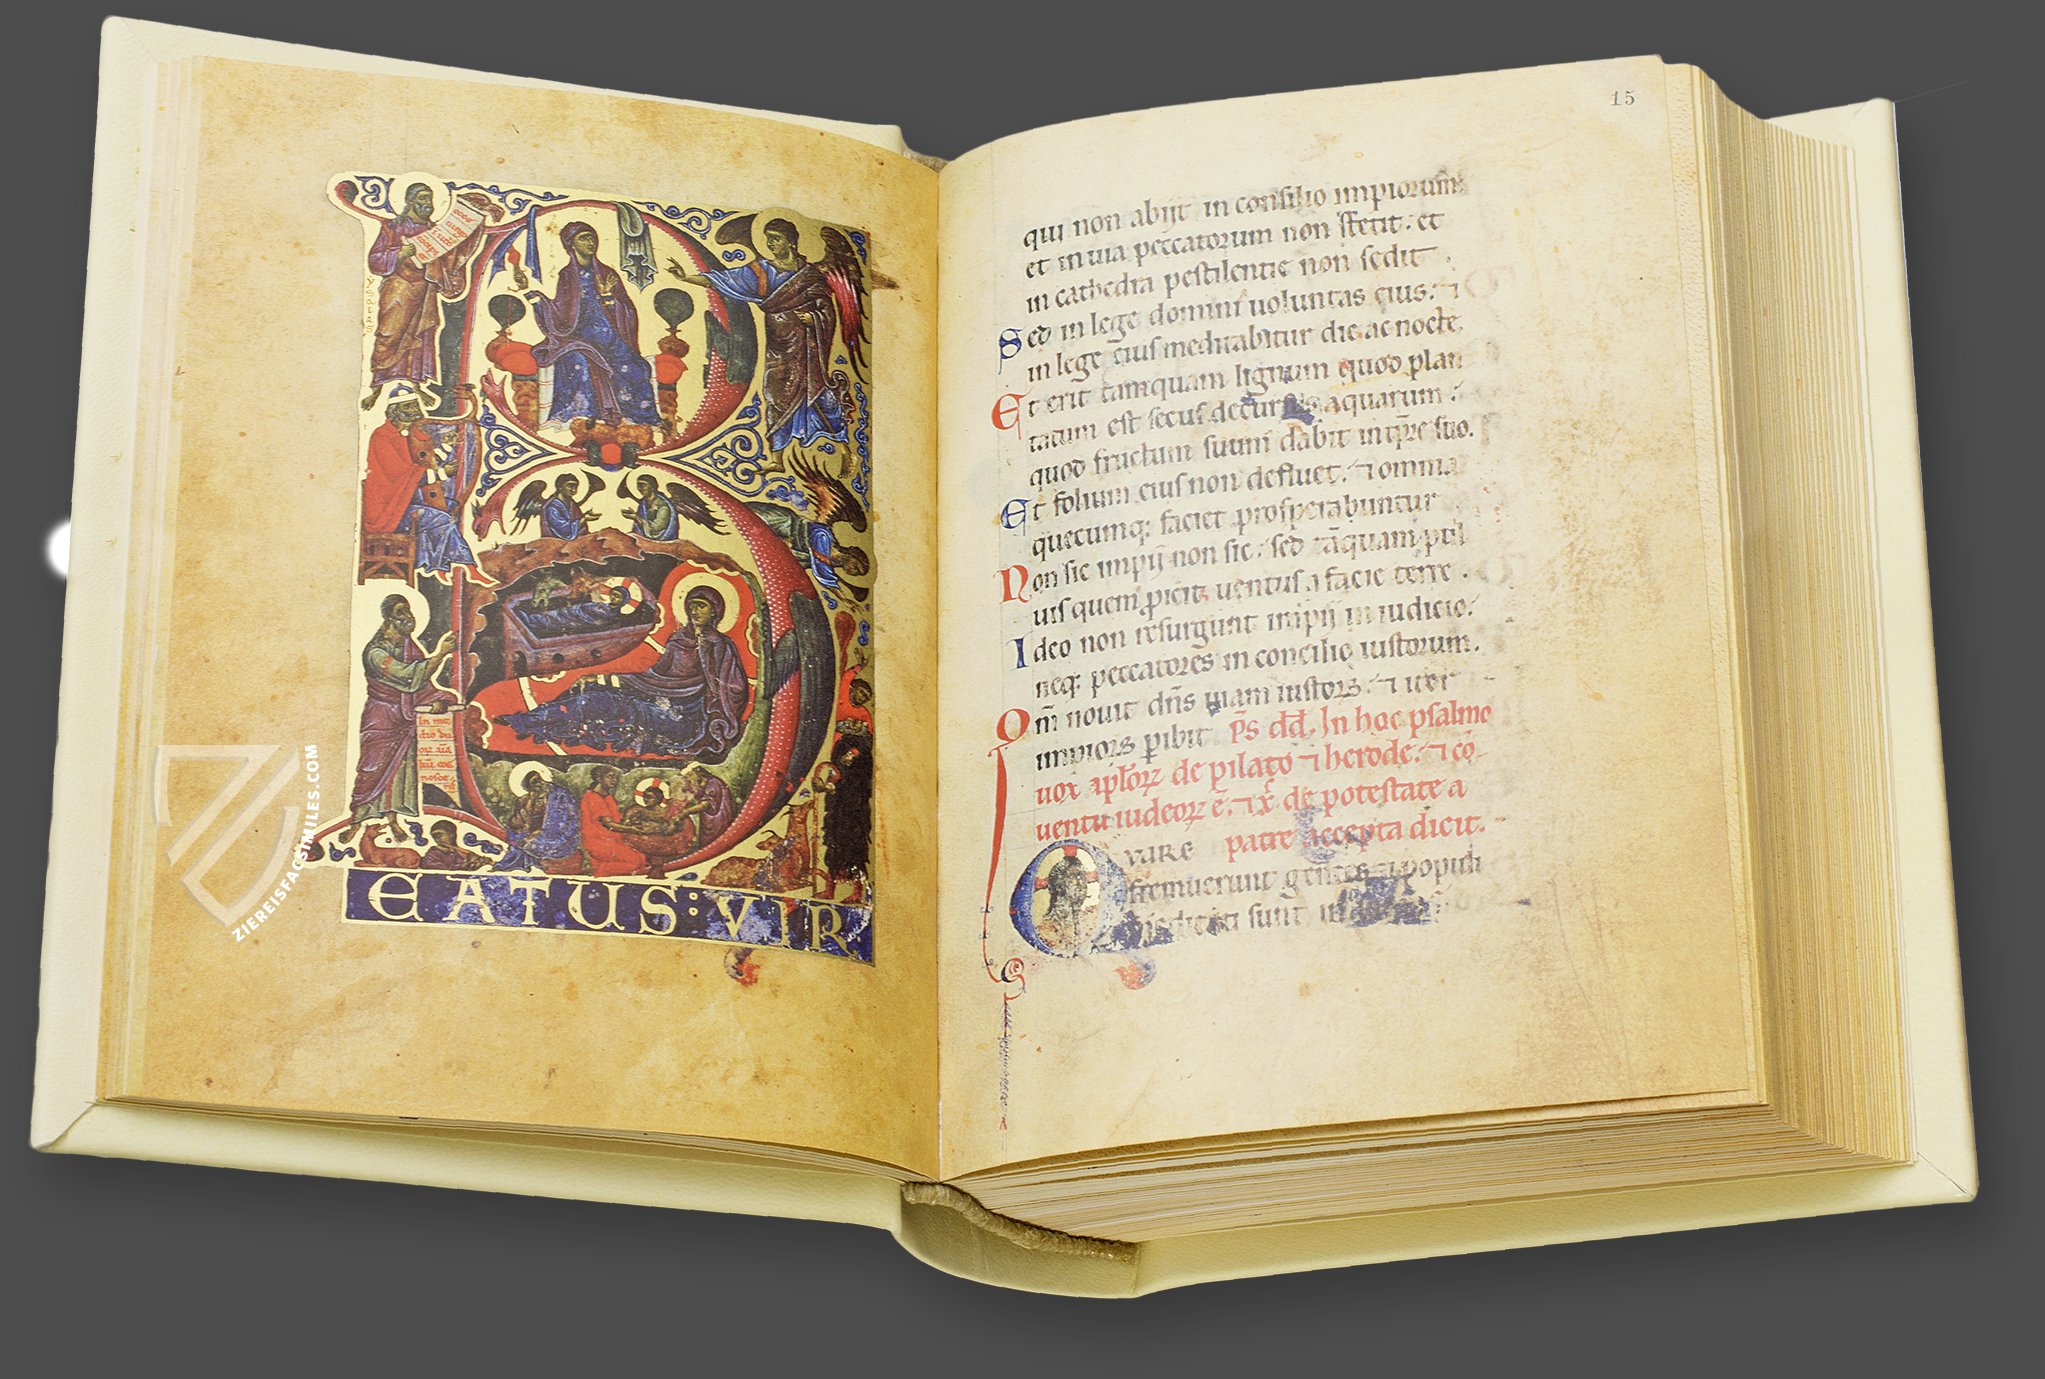 ysaias
In me
dio du
oꝝ aīa
liū coɢ
nosce
EATUS: VIR
ZIEREISFACSIMILES.COM
15
qui non abijt in consilio impiorum
et in uia peccatorum non stetit: et
in cathedra pestilentie non sedit.
Sed in lege domini uoluntas eius: ⁊
in lege eius meditabitur die ac nocte.
Et erit tamquam lignum quod plan
tatum est secus decursus aquarum:
quod fructum suum dabit in tp̄re suo.
Et folium eius non defluet: ⁊ omnia
quecumq; faciet prosperabuntur
Non sic impij non sic: sed tāquam pul
uis quem ꝓicit uentus a facie terre.
Ideo non resurgunt impij in iudicio:
neq; peccatores in concilio iustorum.
Qm̄ nouit dn̄s uiam iustoꝝ: ⁊ iter
impioꝝ ꝑibit P̄s dd̄. In hoc psalmo
uox apl̄oꝝ de pilato ⁊ herode. ⁊ cō
uentu iudeoꝝ ē. ⁊ xp̄ de potestate a
patre accepta dicit.
QVARE
fremuerunt gentes ⁊ populi
sunt